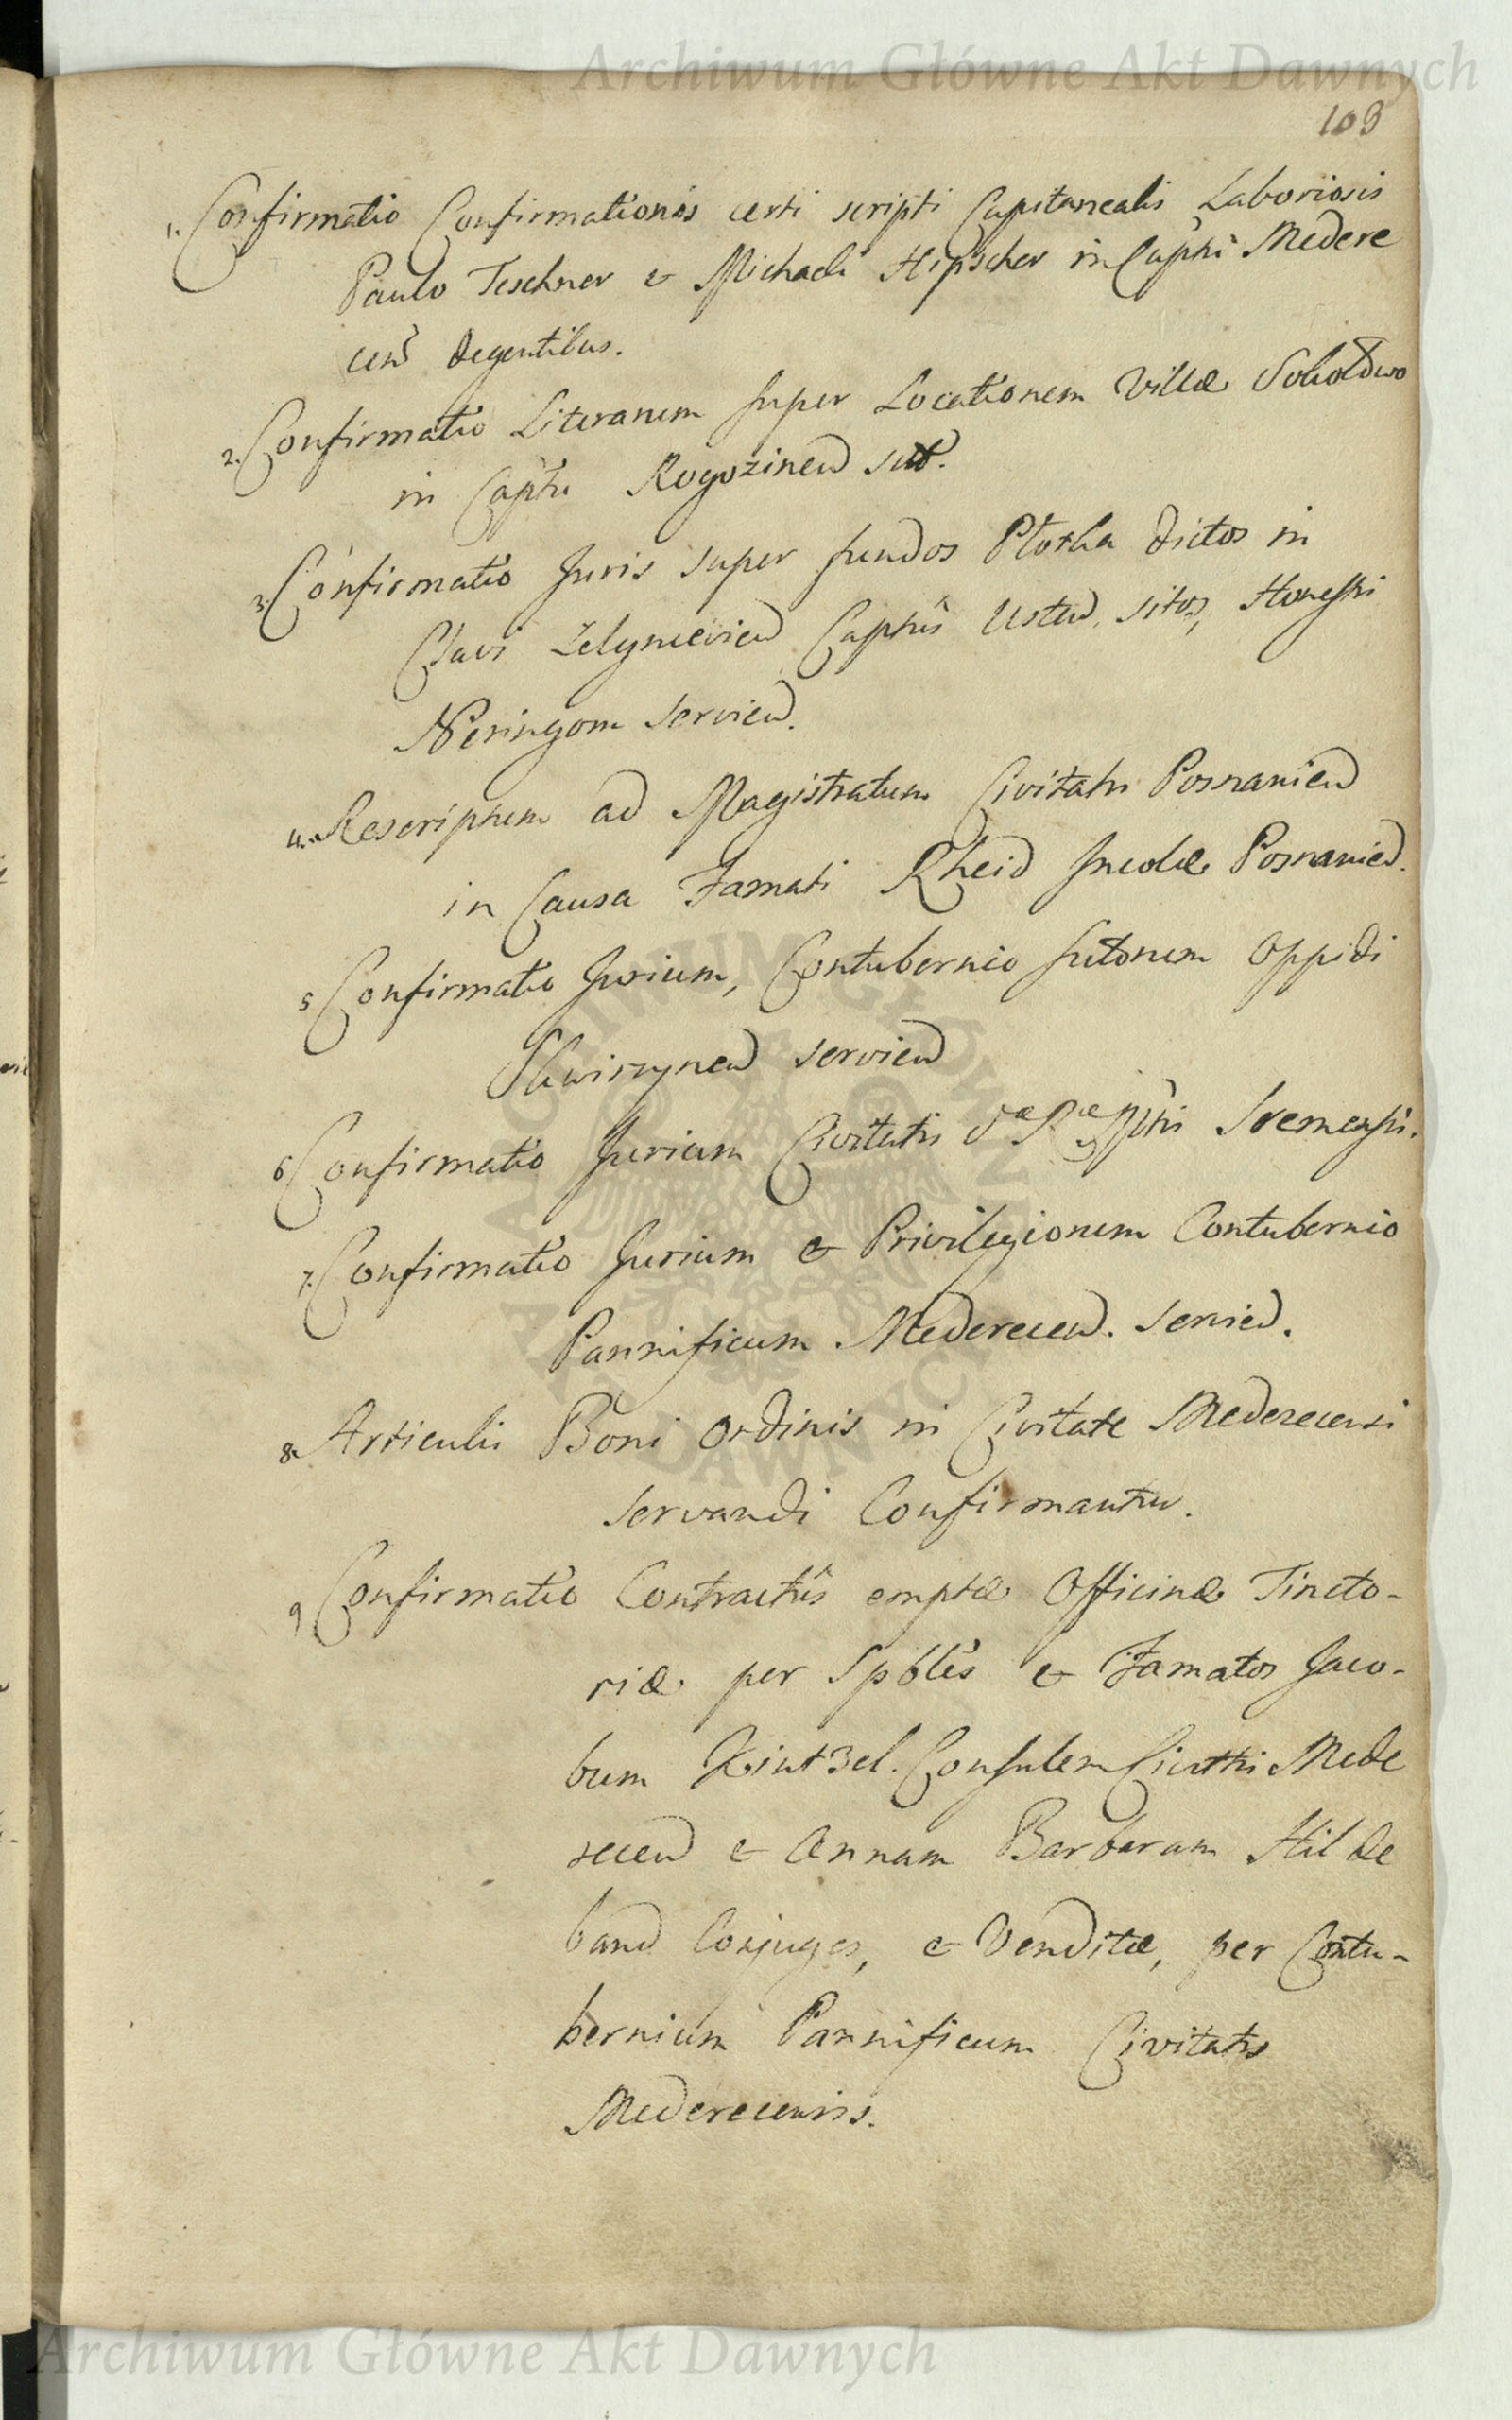 Archiwum Główne Akt Dawnych
103
1. Confirmatio Confirmationis certi scripti Capitanealis Laboriosis
Paulo Teschner & Michaeli Hipscher in Capttu Medere
cens degentibus.
2. Confirmatio Literarum super Locationem Villæ Sokołowo
in Capttu Rogozinen sitæ.
3. Confirmatio Juris super fundos Plotka dictos in
Clavi Zelgnievien Capttûs Usten. sitos, Honesti
Neringom servien.
4. Rescriptum ad Magistratum Civitatis Posnanien
in Causa Famati Rheid Incolæ Posnanien.
5 Confirmatio Jurium, Contubernio Sutorum Oppidi
Skwirzynen servien
6 Confirmatio Jurium Civitatis Sæ Ræ Mttis Sremensi.
7. Confirmatio Jurium & Privilegiorum Contubernio
Pannificum Mederecen. servien.
8. Articuli Boni Ordinis in Civitate Mederecensi
servandi Confirmantur.
9 Confirmatio Contractûs emptæ Officinæ Tincto-
riæ per Spbles & Famatos Jaco-
bum Kintzel. Consulem Civttis Mede
recen & Annam Barbaram Hilde
band Conjuges, & Venditæ, per Contu-
bernium Pannificum Civitatis
Mederecensis.
ARCHIWUM GŁÓWNE AKT DAWNYCH
Archiwum Główne Akt Dawnych